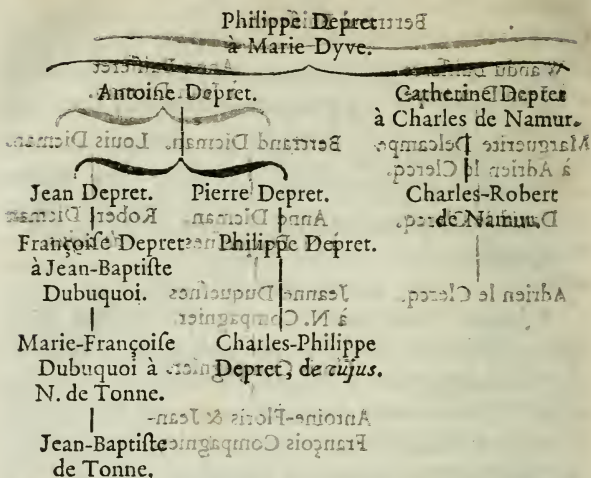 Philippe Depret
à Marie Dyve.
Antoine Depret.
Catherine Depret
à Charles de Namur.
Jean Depret.
Pierre Depret.
Charles-Robert
de Namur.
Françoiſe Depret
à Jean-Baptiſte
Dubuquoi.
Philippe Depret.
Marie-Françoiſe
Dubuquoi à
N. de Tonne.
Charles-Philippe
Depret, de cujus.
Jean-Baptiſte
de Tonne.